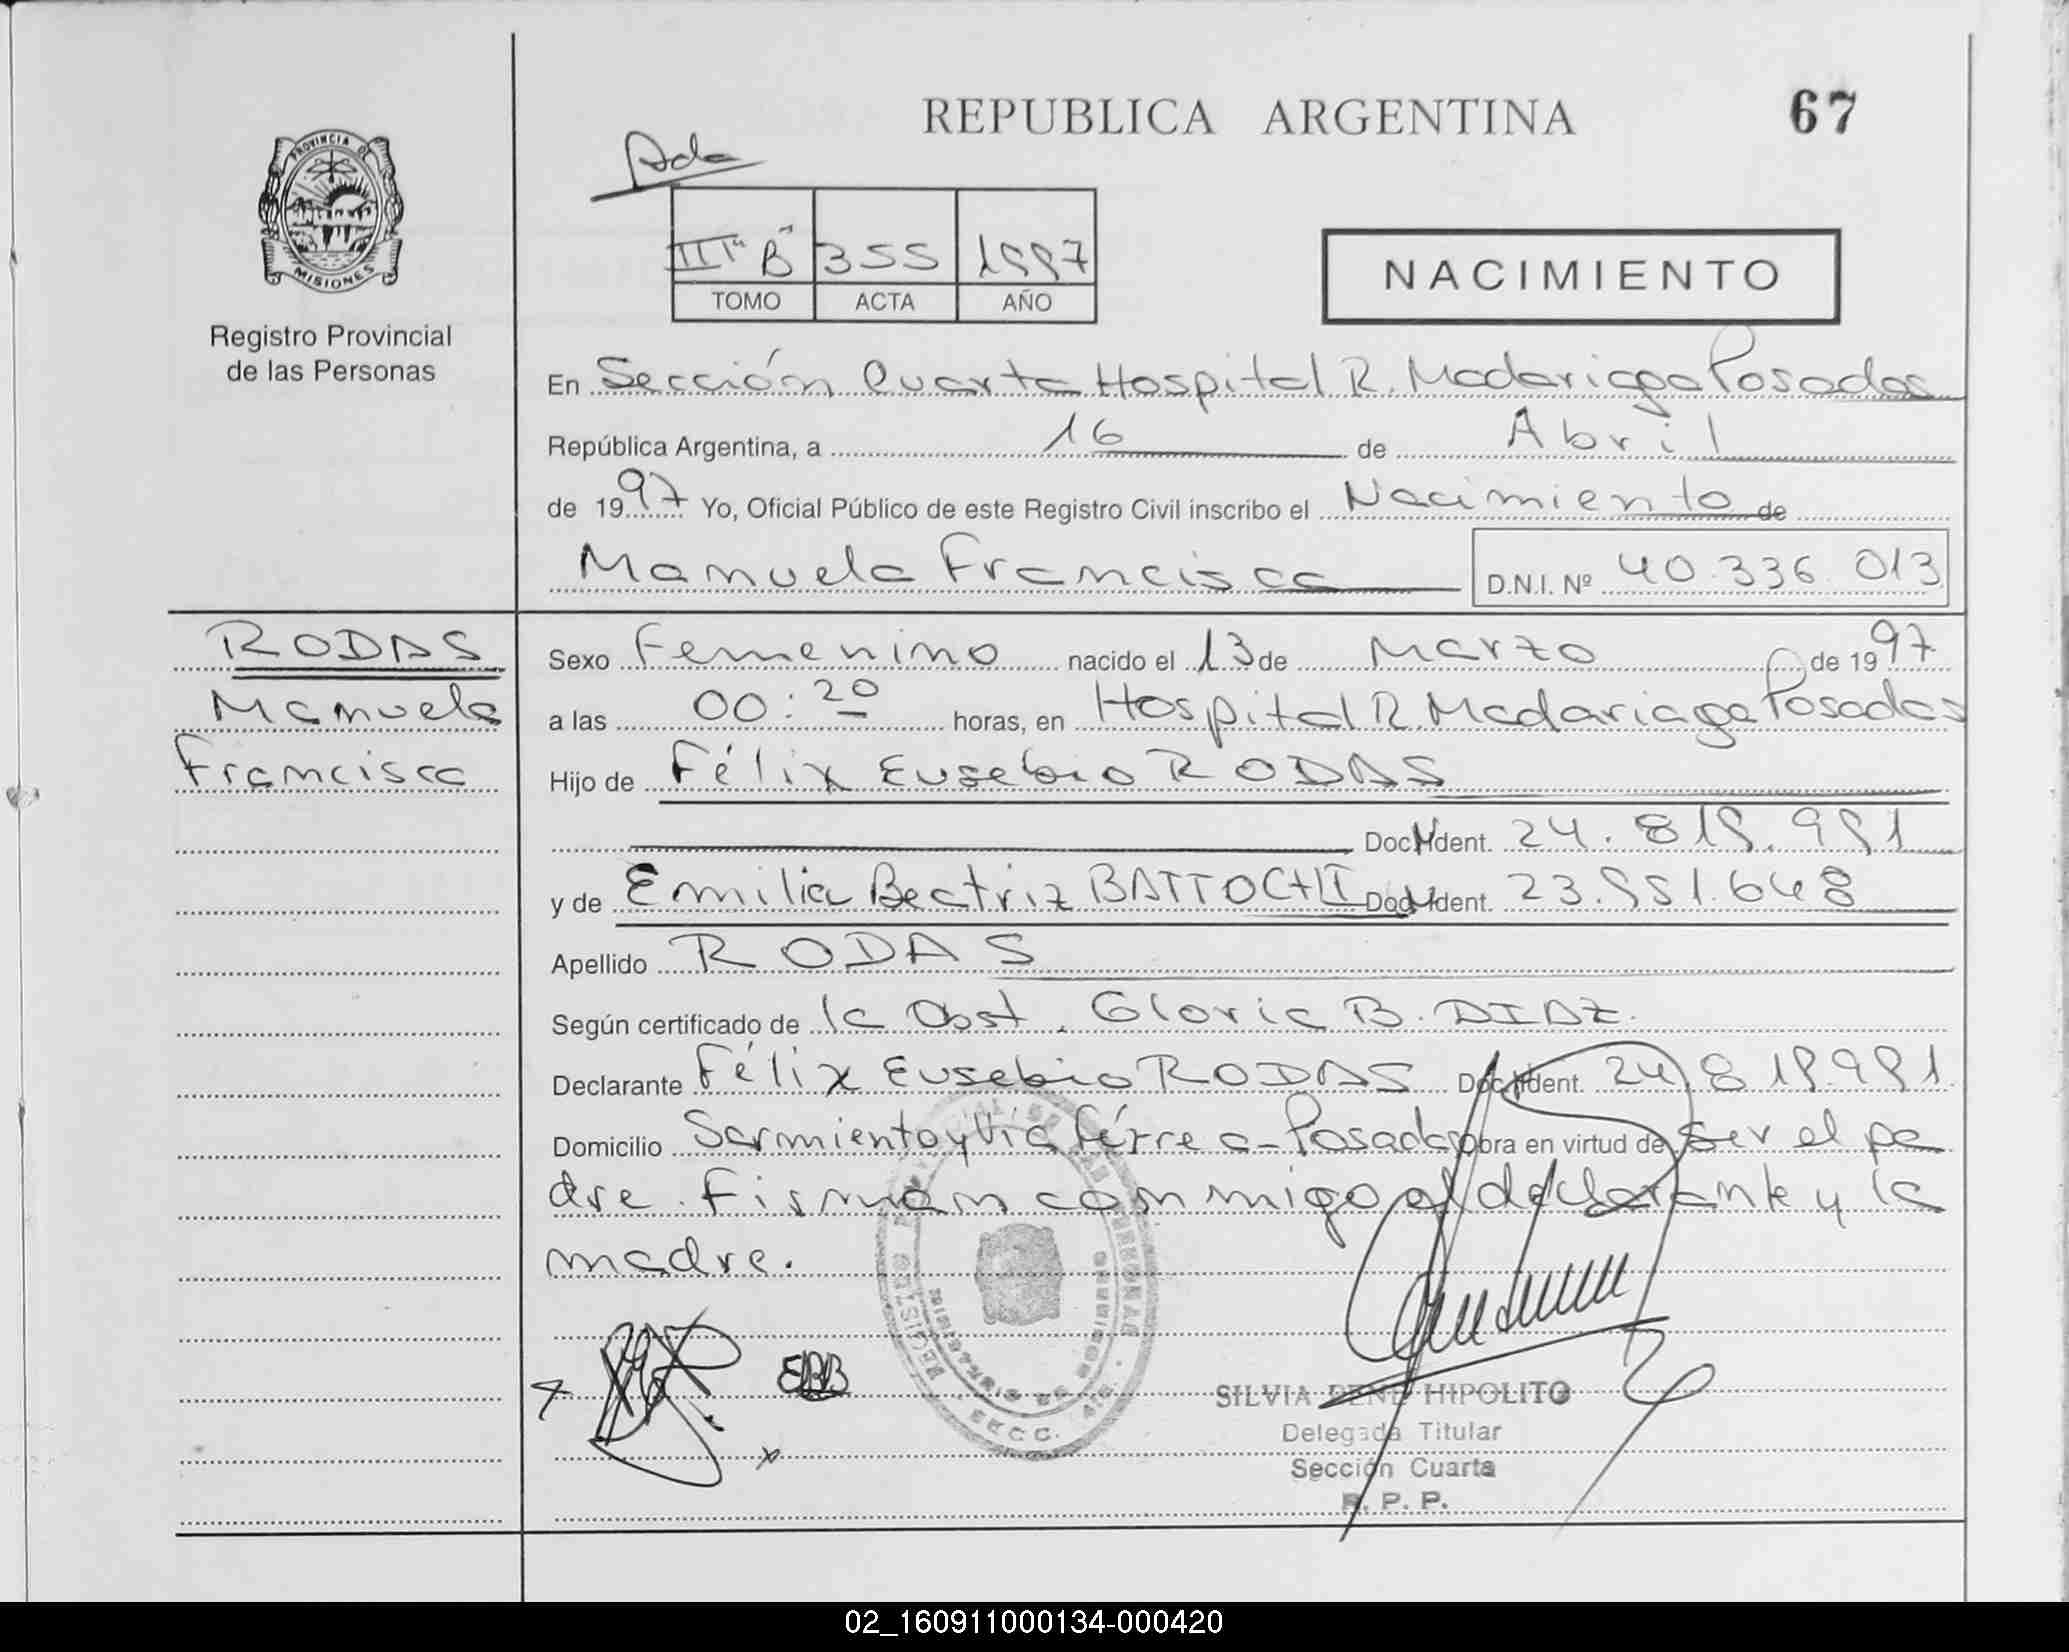 REPUBLICA ARGENTINA 67
PROVINCIA DE
MISIONES
Registro Provincial
de las Personas
Acta
III "B" 355 1997
TOMO ACTA AÑO
NACIMIENTO
En Sección Cuarta Hospital R. Madariaga Posadas
República Argentina, a 16 de Abril
de 1997 Yo, Oficial Público de este Registro Civil inscribo el Nacimiento de
Manuela Francisca D.N.I. Nº 40.336.013
RODAS
Manuela
Francisca
Sexo Femenino nacido el 13 de Marzo de 1997
a las 00:20 horas, en Hospital R. Madariaga Posadas
Hijo de Félix Eusebio RODAS
Doc. Ident. 24.819.991
y de Emilia Beatriz BATTOCHI Doc. Ident. 23.951.648
Apellido RODAS
Según certificado de la Obst. Gloria B. DIAZ.
Declarante Félix Eusebio RODAS Doc. Ident. 24.819.991
Domicilio Sarmiento y Vía Férrea - Posadas obra en virtud de ser el pa
dre. Firman conmigo el declarante y la
madre.
EBB
SILVIA RENE HIPOLITO
Delegada Titular
Sección Cuarta
R. P. P.
02_160911000134-000420